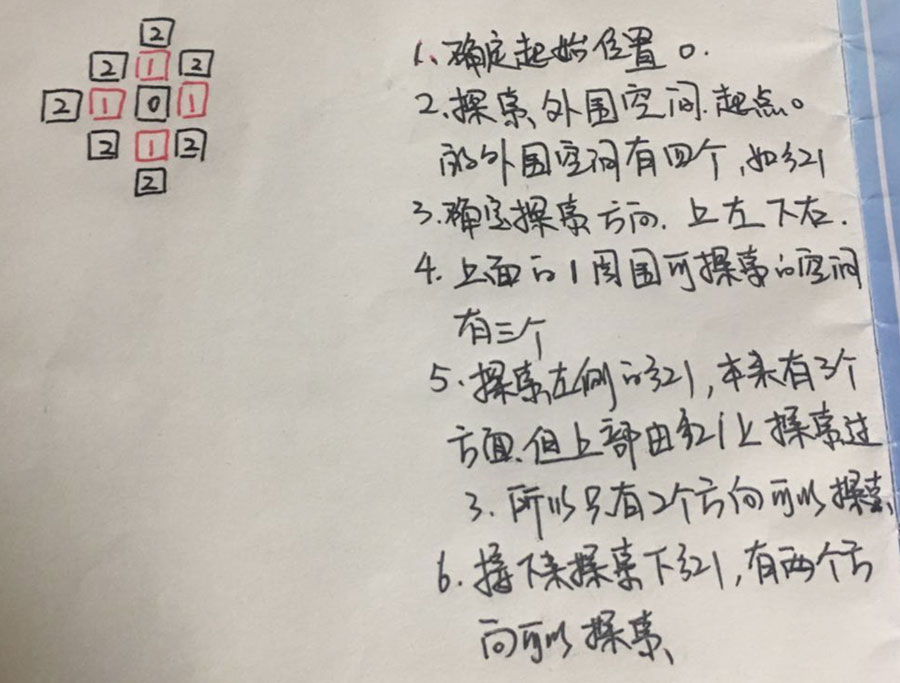 2
2 1 2
2 1 0 1
2 1 2
2
1、确定起始位置0.
2、探索外围空间.起点0
的外围空间有四个,如红1
3、确定探索方向.上左下右.
4.上面的1周围可探索的空间
有三个
5、探索左侧的红1,本来有3个
方面.但上部由红1上探索过
3.所以只有2个方向可以探索、
6、接下来探索下红1,有两个方
向可以探索、